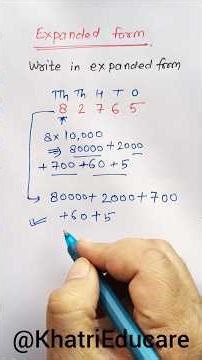 Expanded form
Write in expanded form
TTh Th H T O
8 2 7 6 5
8x 10,000
⇒ 80000 + 2000
+ 700 + 60 + 5
80000 + 2000 + 700
+ 60 + 5
@KhatriEducare